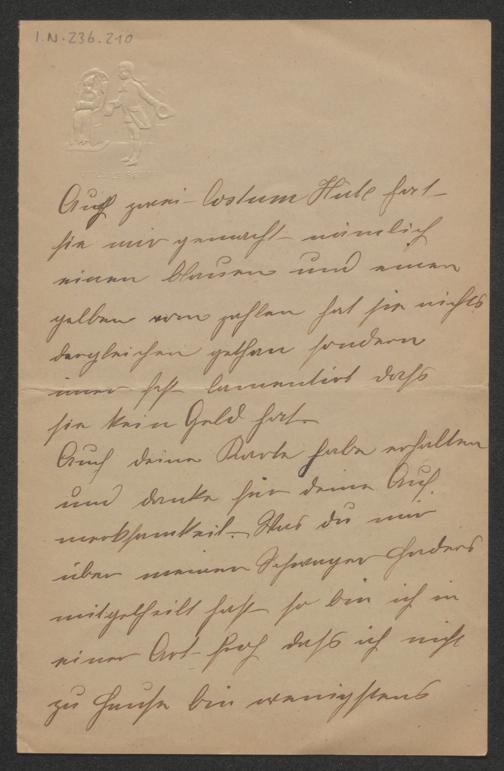 I.N. 236.210
Auch zwei Costum Hüte hat
sie mir gemacht nämlich
einen blauen und einen
gelben vom zahlen hat sie nichts
dergleichen gethan sondern
imer fest lamentirt dass
sie kein Geld hat
Auch deine Karte habe erhalten
und danke für deine Auf
merksamkeit. Was du mir
über meinen Schwager
mitgetheilt hast so bin ich in
einer Art froh dass ich nicht
zu Hause bin wenigstens